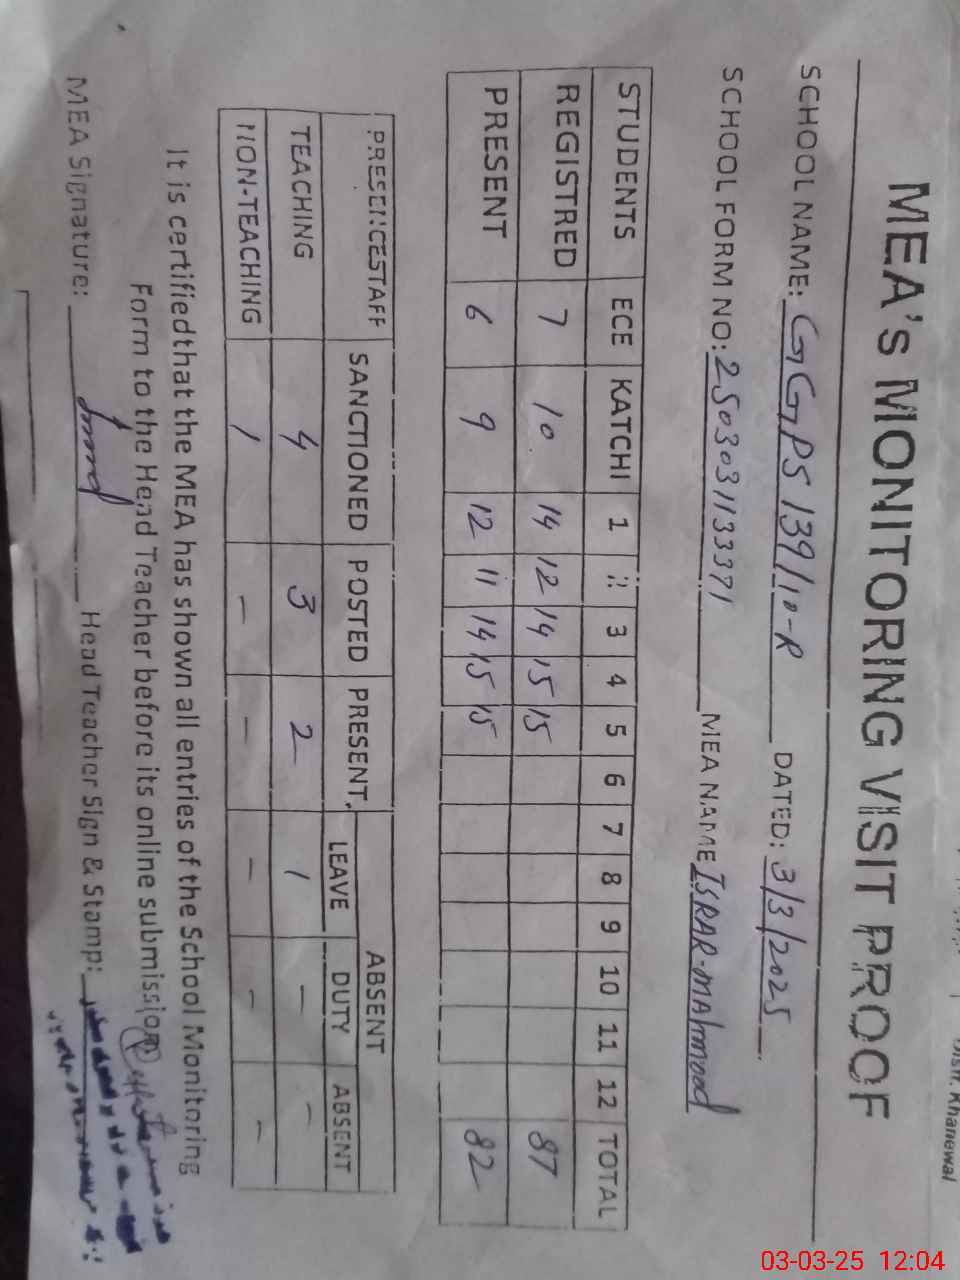 Distt. Khanewal
MEA's MONITORING VISIT PROOF
SCHOOL NAME: GGPS 139/10-R DATED: 3/3/2025
SCHOOL FORM NO: 2503031133371 MEA NAME ISRAR-MAHmood
STUDENTS ECE KATCHI 1 2 3 4 5 6 7 8 9 10 11 12 TOTAL
REGISTRED 7 10 14 12 14 15 15 87
PRESENT 6 9 12 11 14 15 15 82
PRESENCESTAFF SANCTIONED POSTED PRESENT ABSENT
LEAVE DUTY ABSENT
TEACHING 4 3 2 1 - -
NON-TEACHING 1 - - - - -
It is certifiedthat the MEA has shown all entries of the School Monitoring
Form to the Head Teacher before its online submission
MEA Signature: Head Teacher Sign & Stamp:
03-03-25 12:04